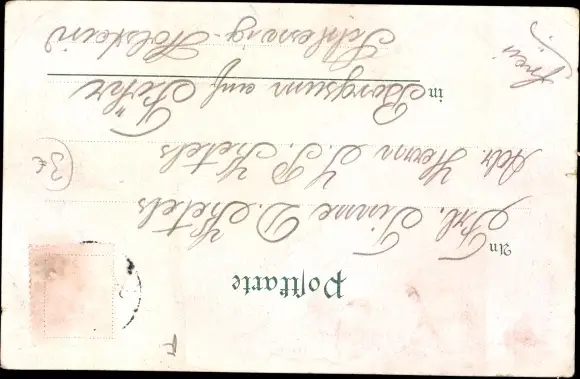 Postkarte
An Frl. Tinne D. Ketels
Adr. Herrn J. P. Ketels
in Borgsum auf Föhr
Schleswig-Holstein
frei
3 €